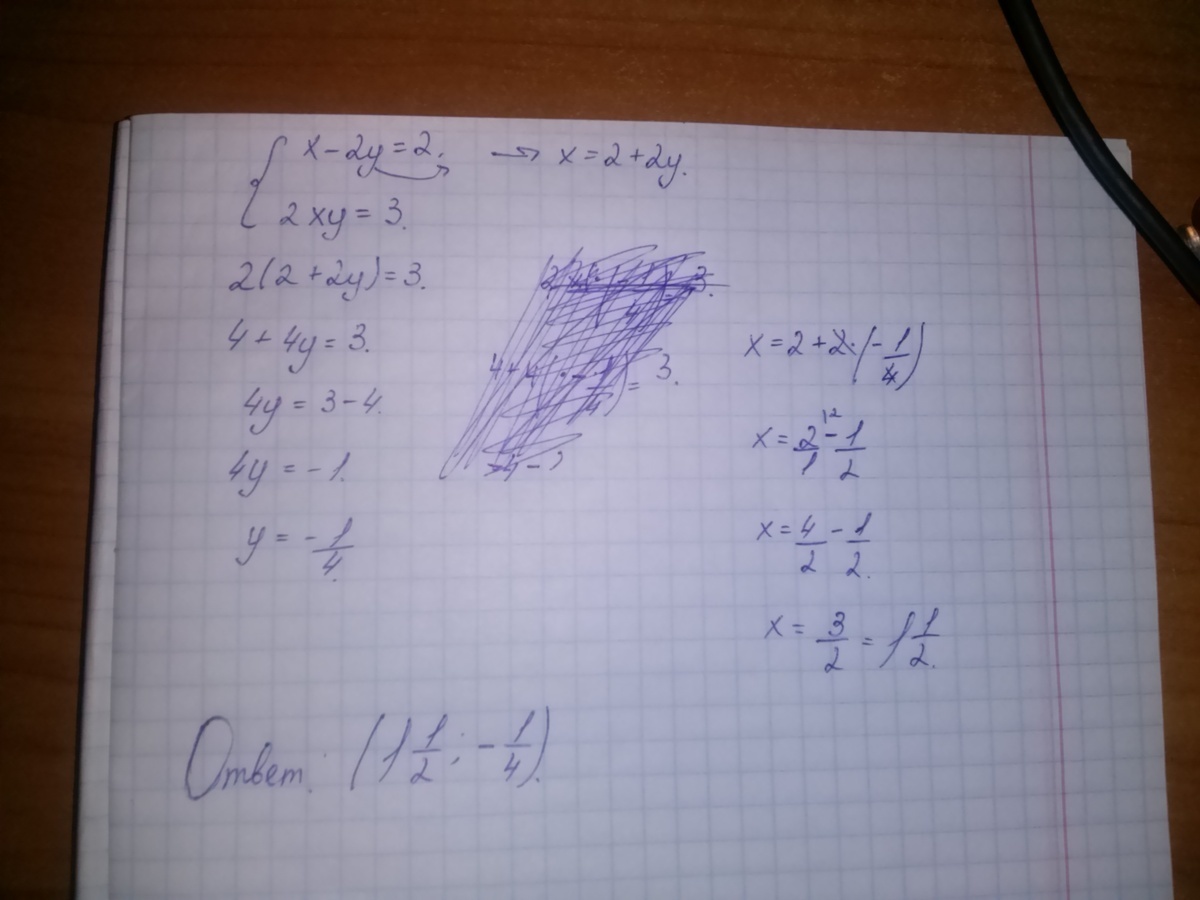 { x - 2y = 2. → x = 2 + 2y.
2xy = 3.
2(2 + 2y) = 3.
4 + 4y = 3.
4y = 3 - 4.
4y = -1.
y = -1/4.
x = 2 + 2·(-1/4)
x = 2/1 - 1/2
x = 4/2 - 1/2.
x = 3/2 = 1 1/2.
Ответ: (1 1/2; -1/4).